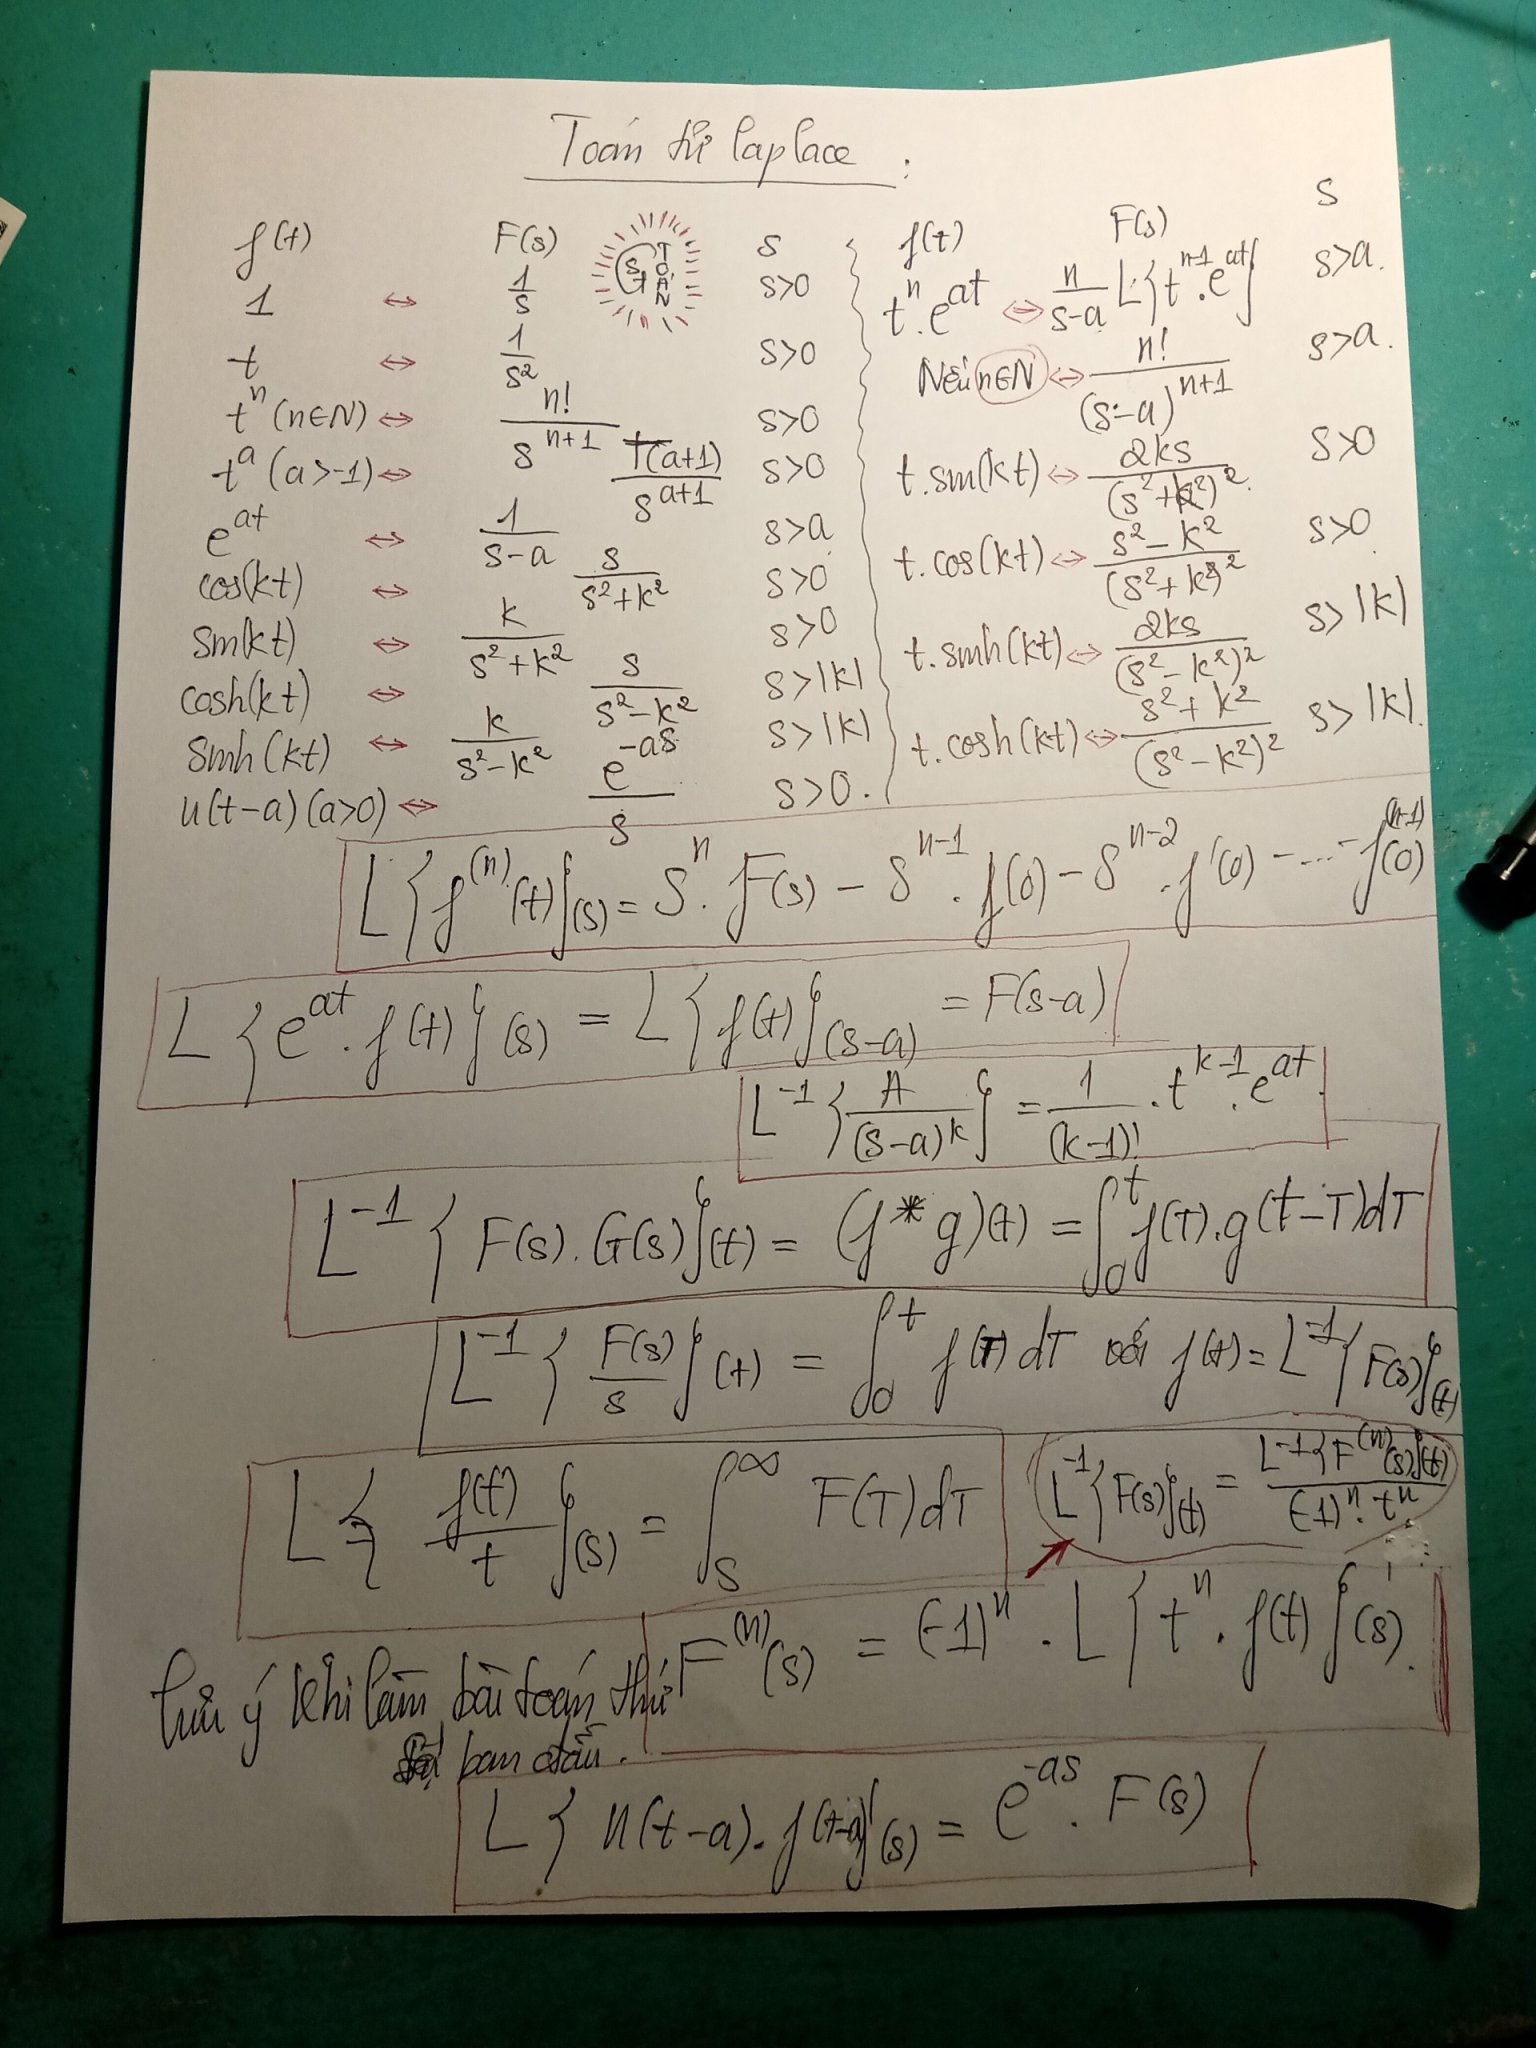 Toán tử laplace :
f(t) F(s) s
1 ⇔ 1/s s>0
t ⇔ 1/s² s>0
tⁿ (n∈N) ⇔ n!/s^(n+1) s>0
t^a (a>-1) ⇔ Γ(a+1)/s^(a+1) s>0
e^(at) ⇔ 1/(s-a) s>a
cos(kt) ⇔ s/(s²+k²) s>0
sin(kt) ⇔ k/(s²+k²) s>0
cosh(kt) ⇔ s/(s²-k²) s>|k|
sinh(kt) ⇔ k/(s²-k²) s>|k|
u(t-a) (a>0) ⇔ e^(-as)/s s>0.
TOÁN
f(t) F(s) s
tⁿ.e^(at) ⇔ n/(s-a) L{t^(n-1).e^(at)} s>a.
Nếu n∈N ⇔ n!/(s-a)^(n+1) s>a.
t.sin(kt) ⇔ 2ks/(s²+k²)². s>0
t.cos(kt) ⇔ (s²-k²)/(s²+k²)² s>0
t.sinh(kt) ⇔ 2ks/(s²-k²)² s>|k|
t.cosh(kt) ⇔ (s²+k²)/(s²-k²)² s>|k|.
L{f^(n)(t)}(s) = s^n.F(s) - s^(n-1).f(0) - s^(n-2).f'(0) - ... - f^(n-1)(0)
L{e^(at).f(t)}(s) = L{f(t)}(s-a) = F(s-a)
L^-1{A/(s-a)^k} = 1/(k-1)!.t^(k-1).e^(at).
L^-1{F(s).G(s)}(t) = (f*g)(t) = ∫₀^t f(T).g(t-T)dT
L^-1{F(s)/s}(t) = ∫₀^t f(T)dT với f(t) = L^-1{F(s)}(t)
L{f(t)/t}(s) = ∫_s^∞ F(T)dT
L^-1{F(s)}(t) = L^-1{F^(n)(s)}(t)/(-1)^n.t^n
F^(n)(s) = (-1)^n.L{t^n.f(t)}(s).
lưu ý khi làm bài toán thứ
ban đầu.
L{u(t-a).f(t-a)}(s) = e^(-as).F(s)